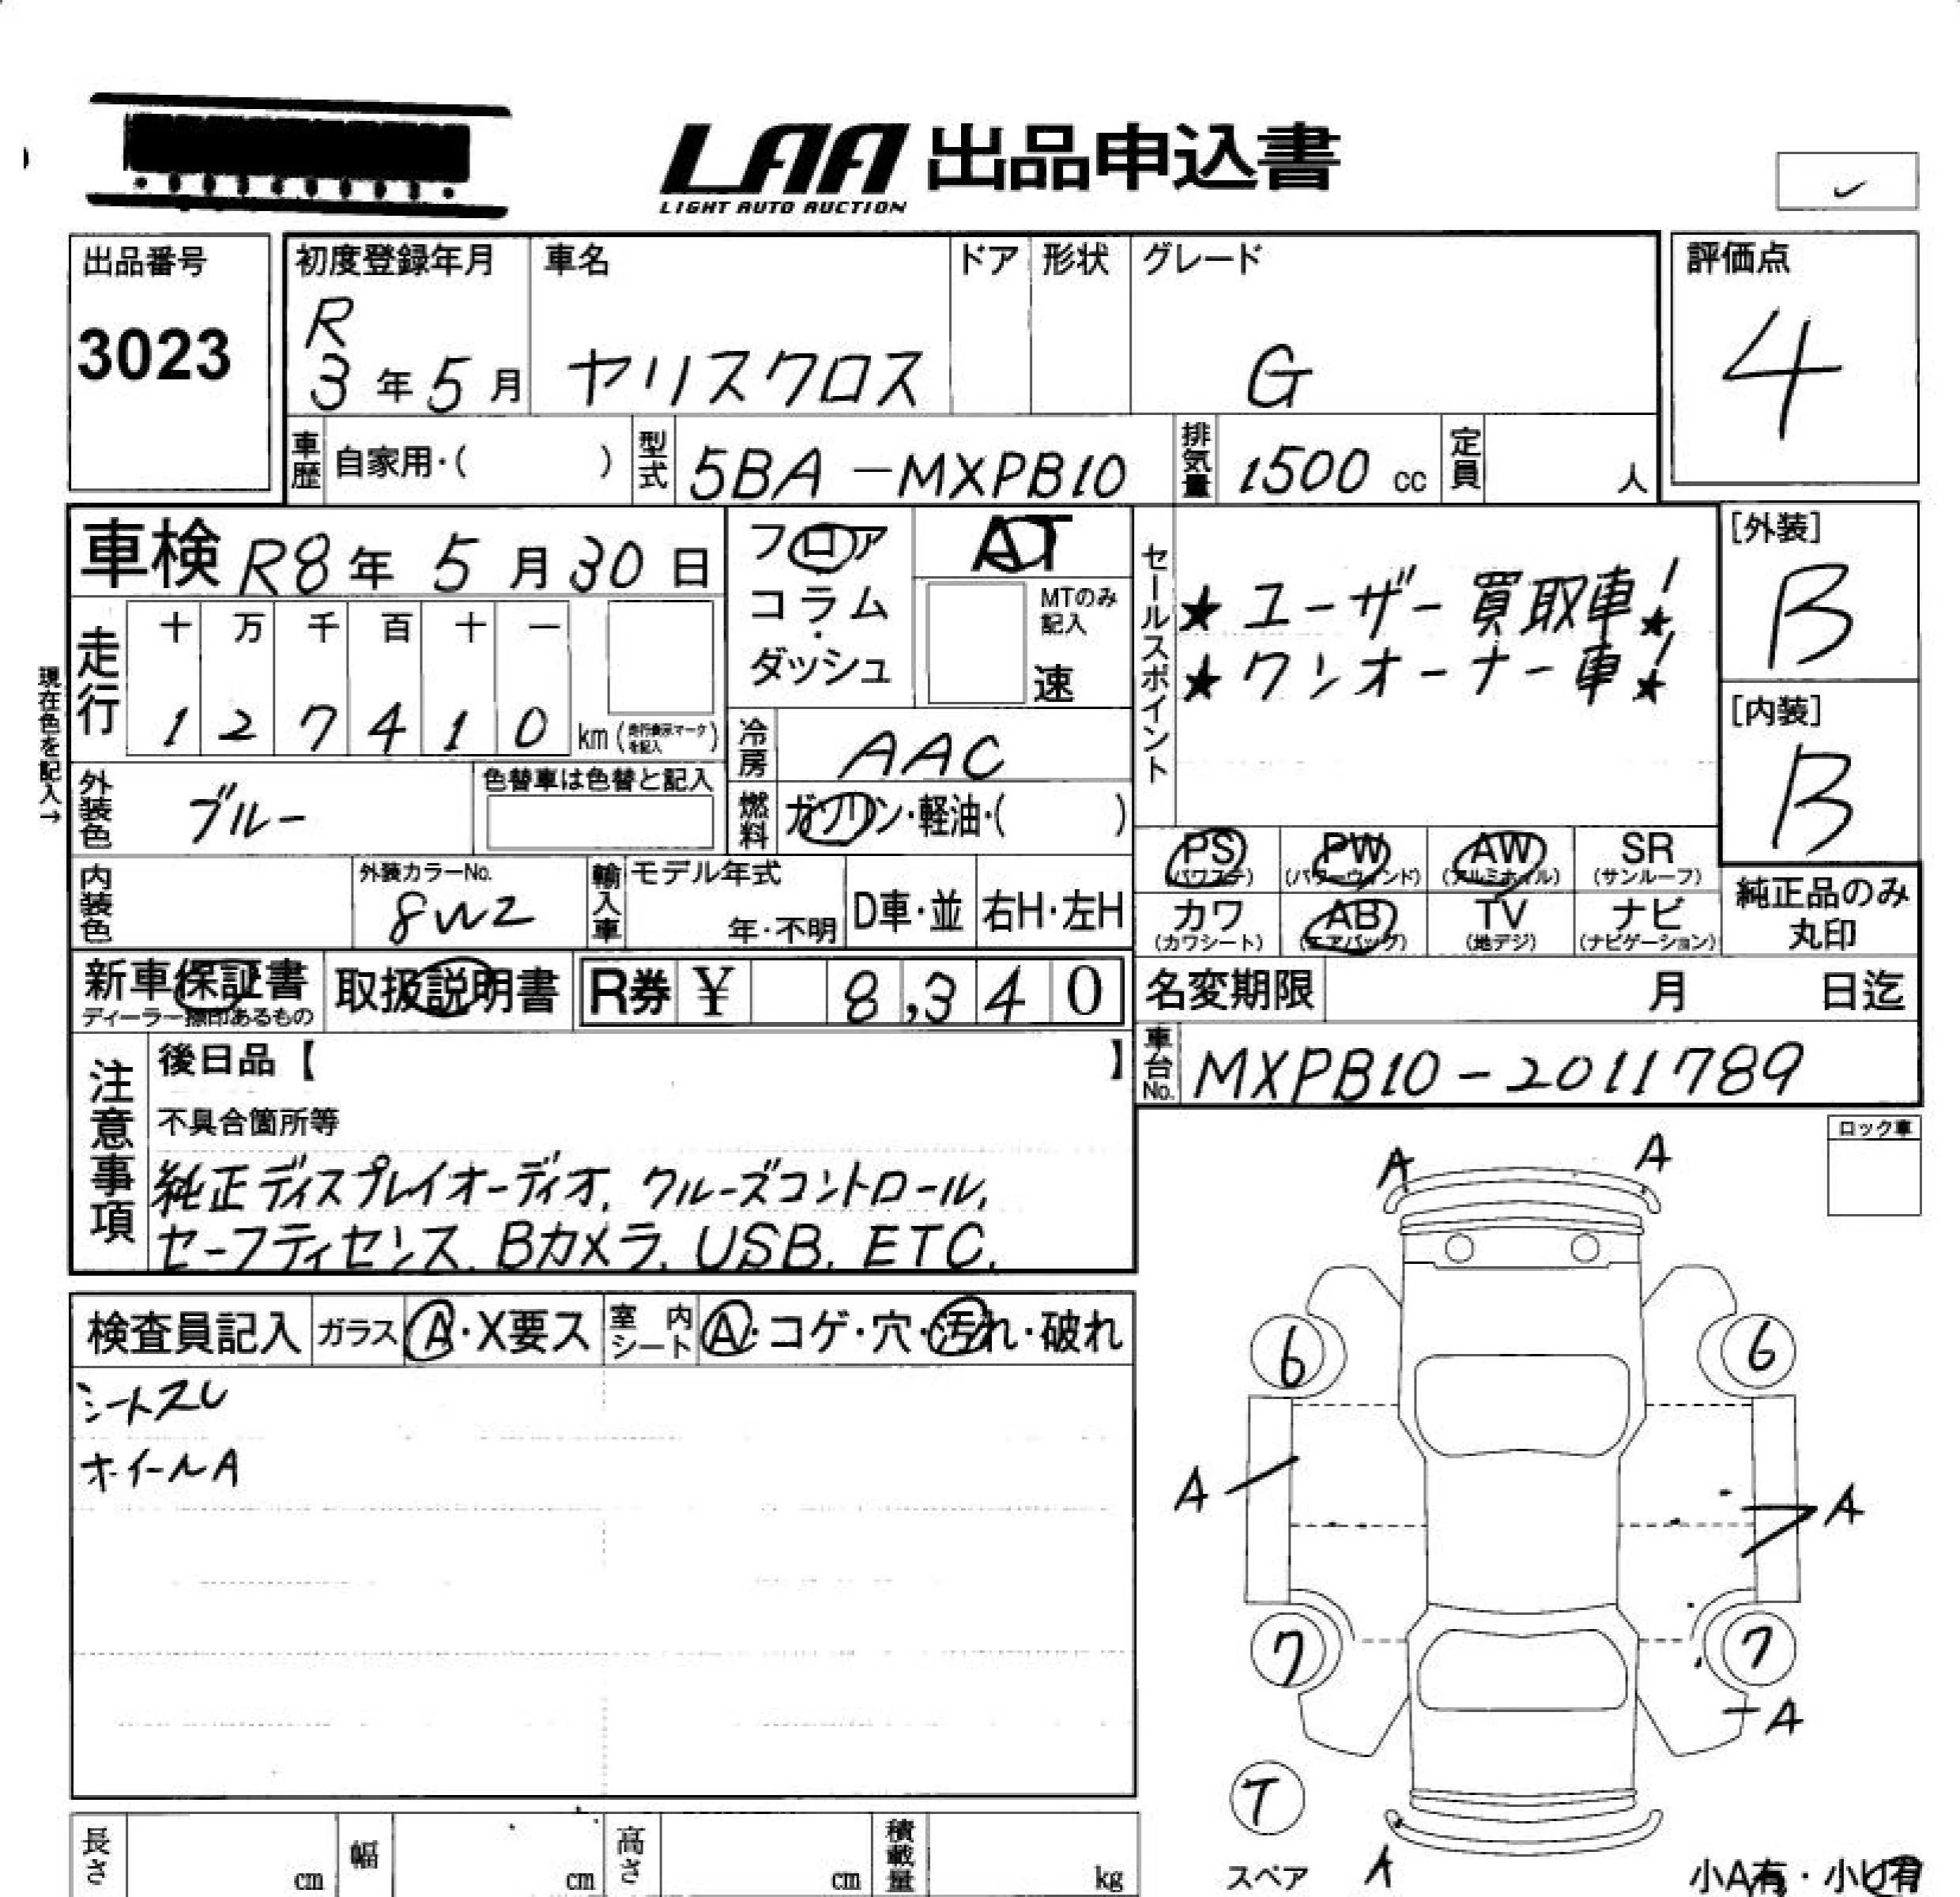 LAA 出品申込書
LIGHT AUTO AUCTION
出品番号
3023
初度登録年月
R
3年5月
車名
ヤリスクロス
ドア
形状
グレード
G
評価点
4
車歴 自家用・( )
型式 5BA-MXPB10
排気量 1500 cc
定員 人
車検 R8年 5月30日
フロア
コラム
・
ダッシュ
AT
MTのみ
記入
速
セールスポイント
★ユーザー買取車!★
★ワンオーナー車!★
[外装]
B
[内装]
B
現在色を記入→
走行
十 万 千 百 十 一
1 2 7 4 1 0 km
冷房 AAC
外装色 ブルー
色替車は色替と記入
燃料 ガソリン・軽油・( )
PS (パワステ)
PW (パワーウィンド)
AW (アルミホイル)
SR (サンルーフ)
カワ (カワシート)
AB (エアバッグ)
TV (地デジ)
ナビ (ナビゲーション)
純正品のみ
丸印
内装色
外装カラーNo.
8W2
輸入車
モデル年式
年・不明
D車・並
右H・左H
新車保証書
ディーラー捺印あるもの
取扱説明書
R券 ¥ 8,340
名変期限 月 日迄
車台No. MXPB10-2011789
注意事項
後日品【 】
不具合箇所等
純正ディスプレイオーディオ、クルーズコントロール、
セーフティセンス、Bカメラ、USB、ETC、
ロック車
検査員記入
ガラス A・X要ス
室内シート A・コゲ・穴・汚れ・破れ
シートスレ
ホイールA
A A
6 6
A A
7 7
A
T
スペア
A
小A有・小U有
長さ cm
幅 cm
高さ cm
積載量 kg